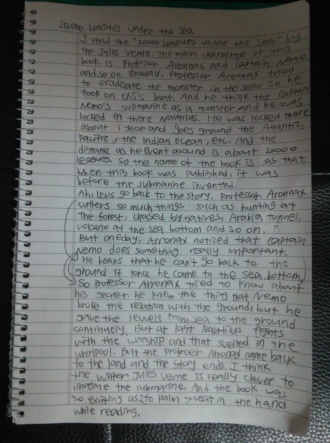 20000 Leagues Under the Sea
I read the "20000 Leagues Under the Sea" by
the Jules Verne. The main characters of this
book is Professor Aronnax and Captain Nemo
and so on. One day, Professor Aronnax tried
to eradicate the monster in the sea. So he
took on USS's boat. And he think the Captain
Nemo's submarine as a monster and he was
locked in there Nautilus. He was locked there
about 1 year and goes around the Atlantic,
Pacific, the Indian Ocean, etc. And the
distance as he went around is about 20000
leagues so the name of the book is as that
when this book was published, it was
before the submarine invented.
Ah, let's go back to the story, Professor Aronnax
suffers so much things such as hunting at
The forest, chased by natives, Arabia tunnel,
volcano at the sea bottom and so on.
But one day, Aronnax noticed that captain
Nemo does something really important.
He hears that he can't go back to the
ground if once he come to the sea bottom,
so Professor Aronnax tried to know about
his secret. he knew the thing that Nemo
broke the relation with the ground, but he
gave the jewels from sea to the ground
continuely. But at last Nautilus fights
with the warship and that swelled in the
whirlpool. But the Professor Aronnax came back
to the land and the story ends. I think
the writer Jules Verne is really clever to
imagine the submarine. And the book was
so exciting as to palm sweat in the hand
while reading.